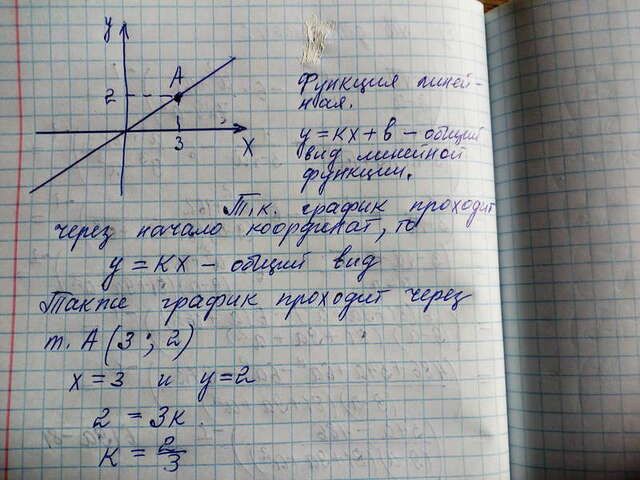 y
A
2
3
x
Функция линей-
ная.
y = кx + в – общий
вид линейной
функции.
Т.к. график проходит
через начало координат, то
y = кx – общий вид
Также график проходит через
т. A (3 ; 2)
x = 3 и y = 2
2 = 3к.
к = 2/3